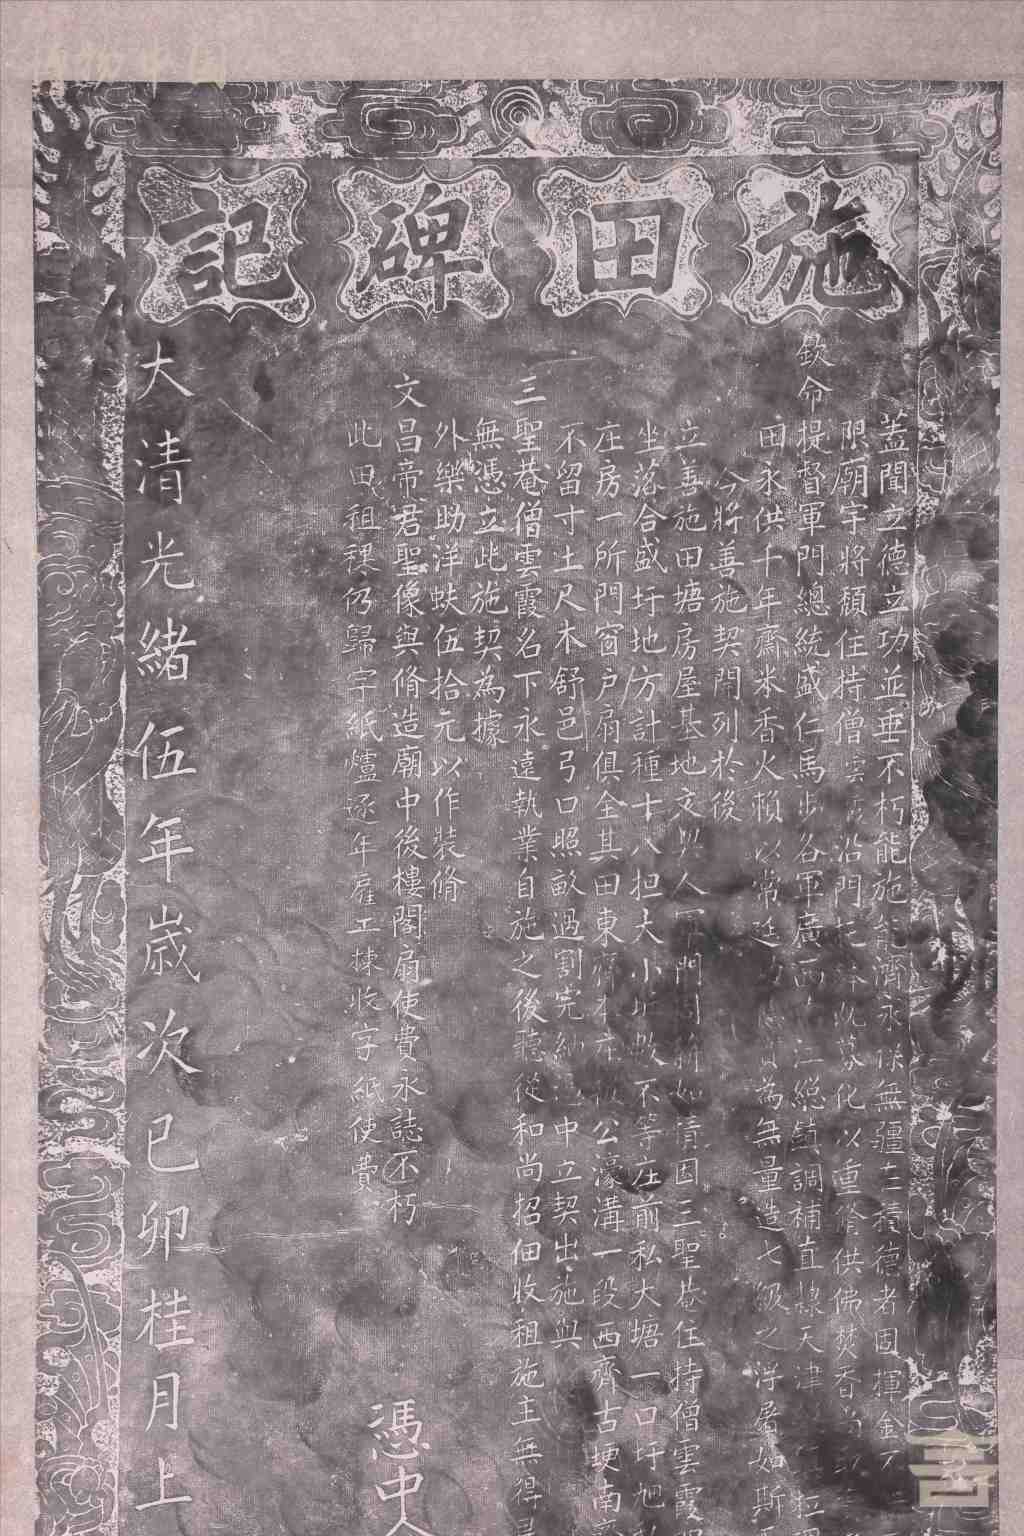 施田碑記
蓋聞立德立功並垂不朽能施能濟永保無疆士之積德者固揮金
限廟宇將頹住持僧雲沿門化以重脩供佛焚香
欽命提督軍門總統盛仁馬步各軍廣西江總鎮調補直隸天津
田永供十年齋米香火賴以常延為無量造七級之浮屠如斯
今將善施契開列於後
立善施田塘房屋基地文契人門因三聖菴住持僧雲霞
坐落合盛圩地方計種十八担大小坵畝不等庄前私大塘一口圩旭
庄房一所門窗戶扇俱全其田東齊公濠溝一段西齊古埂南
不留寸土尺木舒邑弓口照畝過割完納中立契出施與
三聖菴僧雲霞名下永遠執業自施之後聽從和尚招佃收租施主無得
無憑立此施契為據
外樂助洋蚨伍拾元以作裝脩
文昌帝君聖像與脩造廟中後樓閣扇使費永誌不朽
此田租稞仍歸字紙爐逐年雇工揀收字紙使費
憑中人
大清光緒伍年歲次己卯桂月上